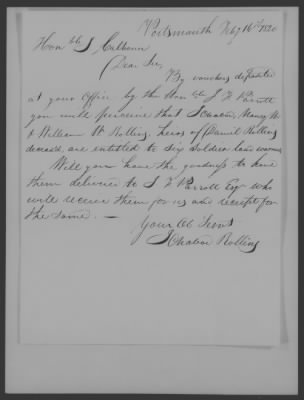 Portsmouth Feby 16th 1820
Honble J Calhoun
Dear Sir,
By vouchers deposited
at your Office by the Honble J F Parrott
you will perceive that Ichabod, Nancy W
& William W Rollins, heirs of Daniel Rollins
deceased, are entitled to Six Soldiers land warrants
Will you have the goodness to have
them delivered to J F Parrott Esqr who
will receive them for us and receipt for
the same. —
Your Ob Servt
Ichabod Rollins